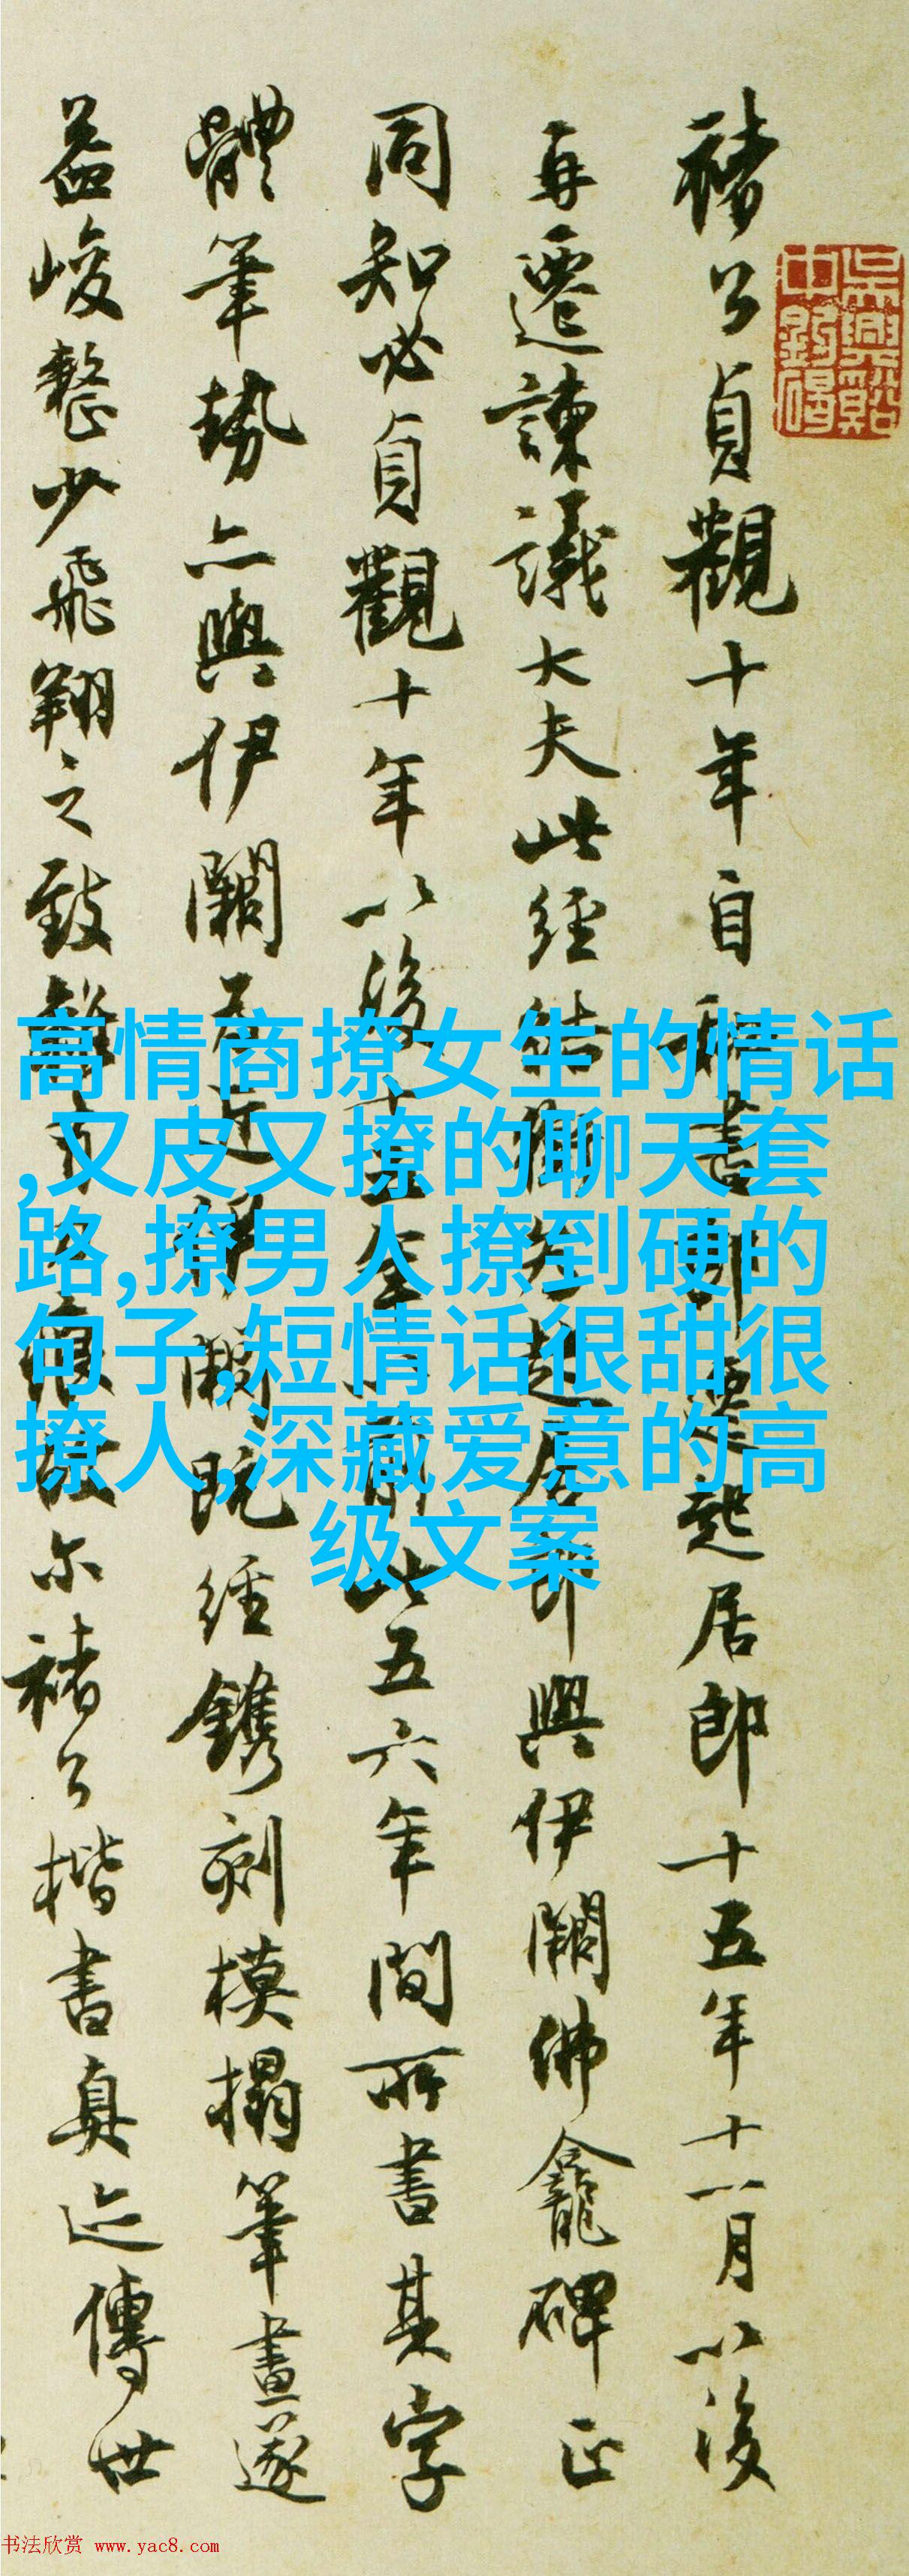 褚公貞觀十年自秘書郎遷起居郎十五年十一月以後
再遷諫議大夫此經結銜爲起居郎與伊闕佛龕碑正
同知必貞觀十年以後十五年以前此五六年間所書其字
體筆勢亦與伊闕爲近伊闕既經鐫刻模搨筆畫遂
益峻整少飛翔之致尔褚公楷書真迹傳世
高情商撩女生的情话
,又皮又撩的聊天套
路,撩男人撩到硬的
句子,短情话很甜很
撩人,深藏爱意的高
级文案
书法欣赏 www.yac8.com